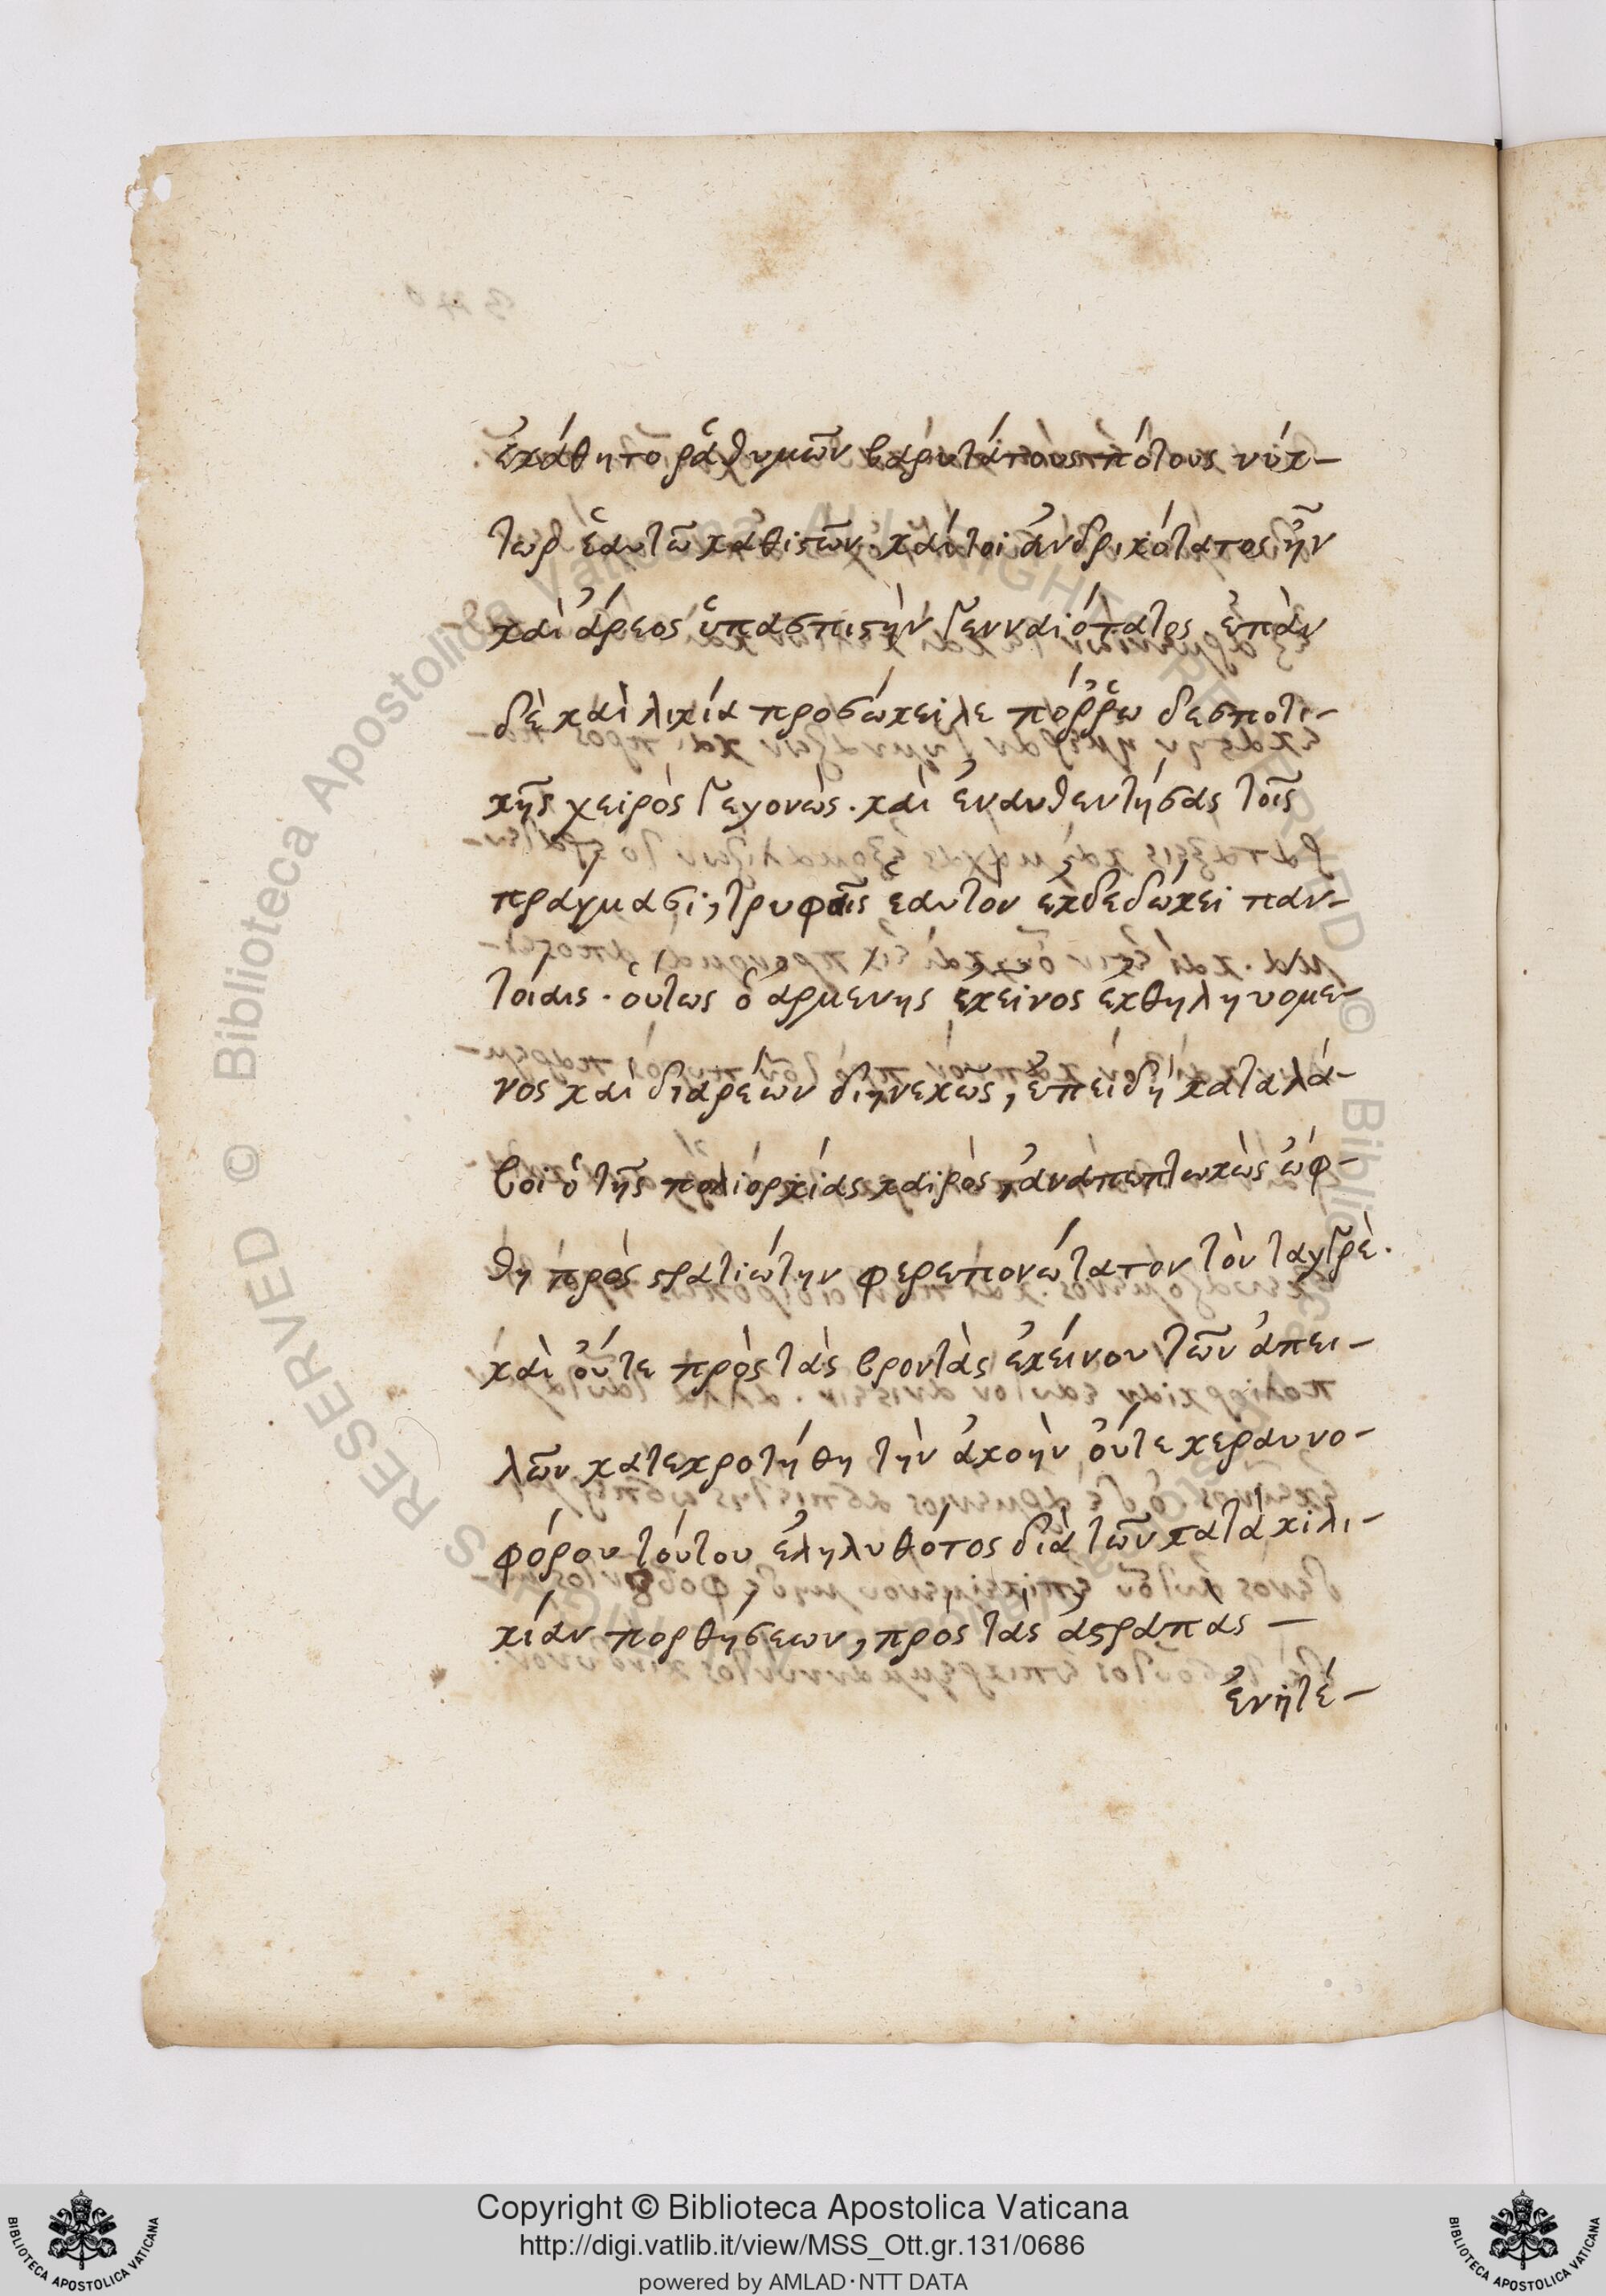 ἐκάθητο ῥᾳθυμῶν βαρυτάτους πότους νύκ-
τωρ ἑαυτῶ καθιστῶν. καίτοι ἀνδρικότατος ἦν
καὶ ἄρεος ὑπασπιστὴν γενναιότατος ἐπὰν
δὲ καὶ λικία προσώκειλε πόῤῥω δεσποτι-
κῆς χειρὸς γεγονὼς. καὶ ἐναυθεντήσας τοῖς
πράγμασι, τρυφαῖς ἑαυτὸν ἐκδεδώκει παν-
τοίαις. οὕτως ὁ ἀρμενης ἐκεῖνος ἐκθηλυνομε-
νος καὶ διαρέων διηνεκῶς, ἐπειδὴ καταλά-
βοι ὁ τῆς πολιορκίας καιρὸς, ἀναπεπτωκὼς ὤφ-
θη πρὸς στρατιώτην φερεπονώτατον τὸν ταγγρὲ.
καὶ οὔτε πρὸς τὰς βροντὰς ἐκείνου τῶν ἀπει-
λῶν κατεκροτήθη τὴν ἀκοὴν οὔτε κεραυνο-
φόρου τούτου ἐληλυθότος διὰ τῶν κατὰ κιλι-
κίαν πορθήσεων, πρὸς τὰς ἀστραπὰς —
ἐνητέ-
Copyright © Biblioteca Apostolica Vaticana
http://digi.vatlib.it/view/MSS_Ott.gr.131/0686
powered by AMLAD·NTT DATA
BIBLIOTECA APOSTOLICA VATICANA
BIBLIOTECA APOSTOLICA VATICANA